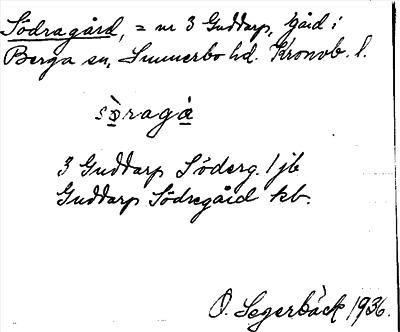 Södragård, = nr 3 Guddarp, gård i
Berga sn, Sunnerbo hd. Kronob. l.
sö̀ragå
3 Guddarp Söderg. / jb
Guddarp Södregård kb.
O. Segerbäck 1936.